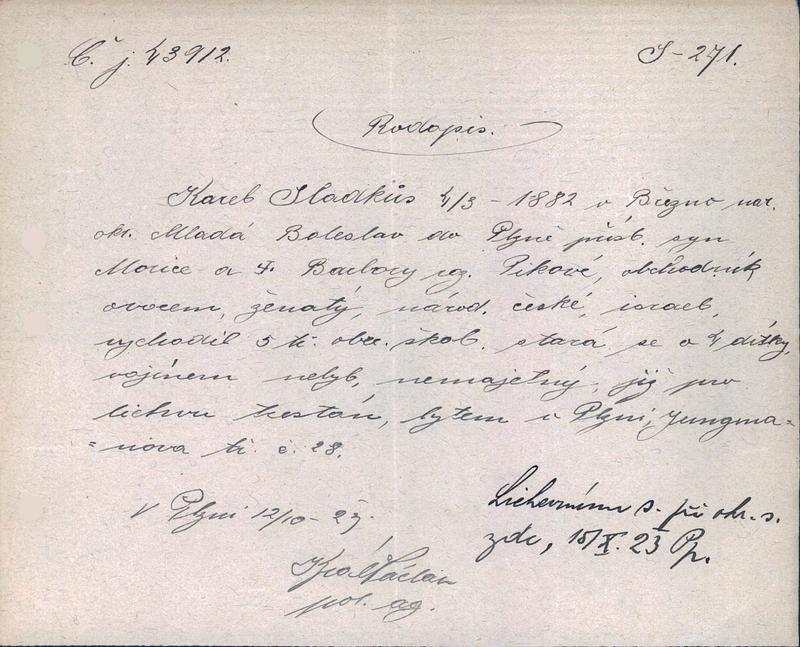 Č. j. 43912.
S-271.
Rodopis.
Karel Sladkůs 4/3 - 1882 v Březno nar.
okr. Mladá Boleslav do Plzně přísl. syn
Morice a † Barbory roz. Pikové, obchodník
ovocem, ženatý, národ. české, israel,
vychodil 5 tř. obec. škol. stará se o 4 dítky,
vojínem nebyl, nemajetný, již pro
lichvu trestán, bytem v Plzni, Jungma=
=nova tř. č. 28.
V Plzni 12/10 - 23.
Král Václav
pol. ag.
Lichevnímu s. při okr. s.
zde, 15/X. 23